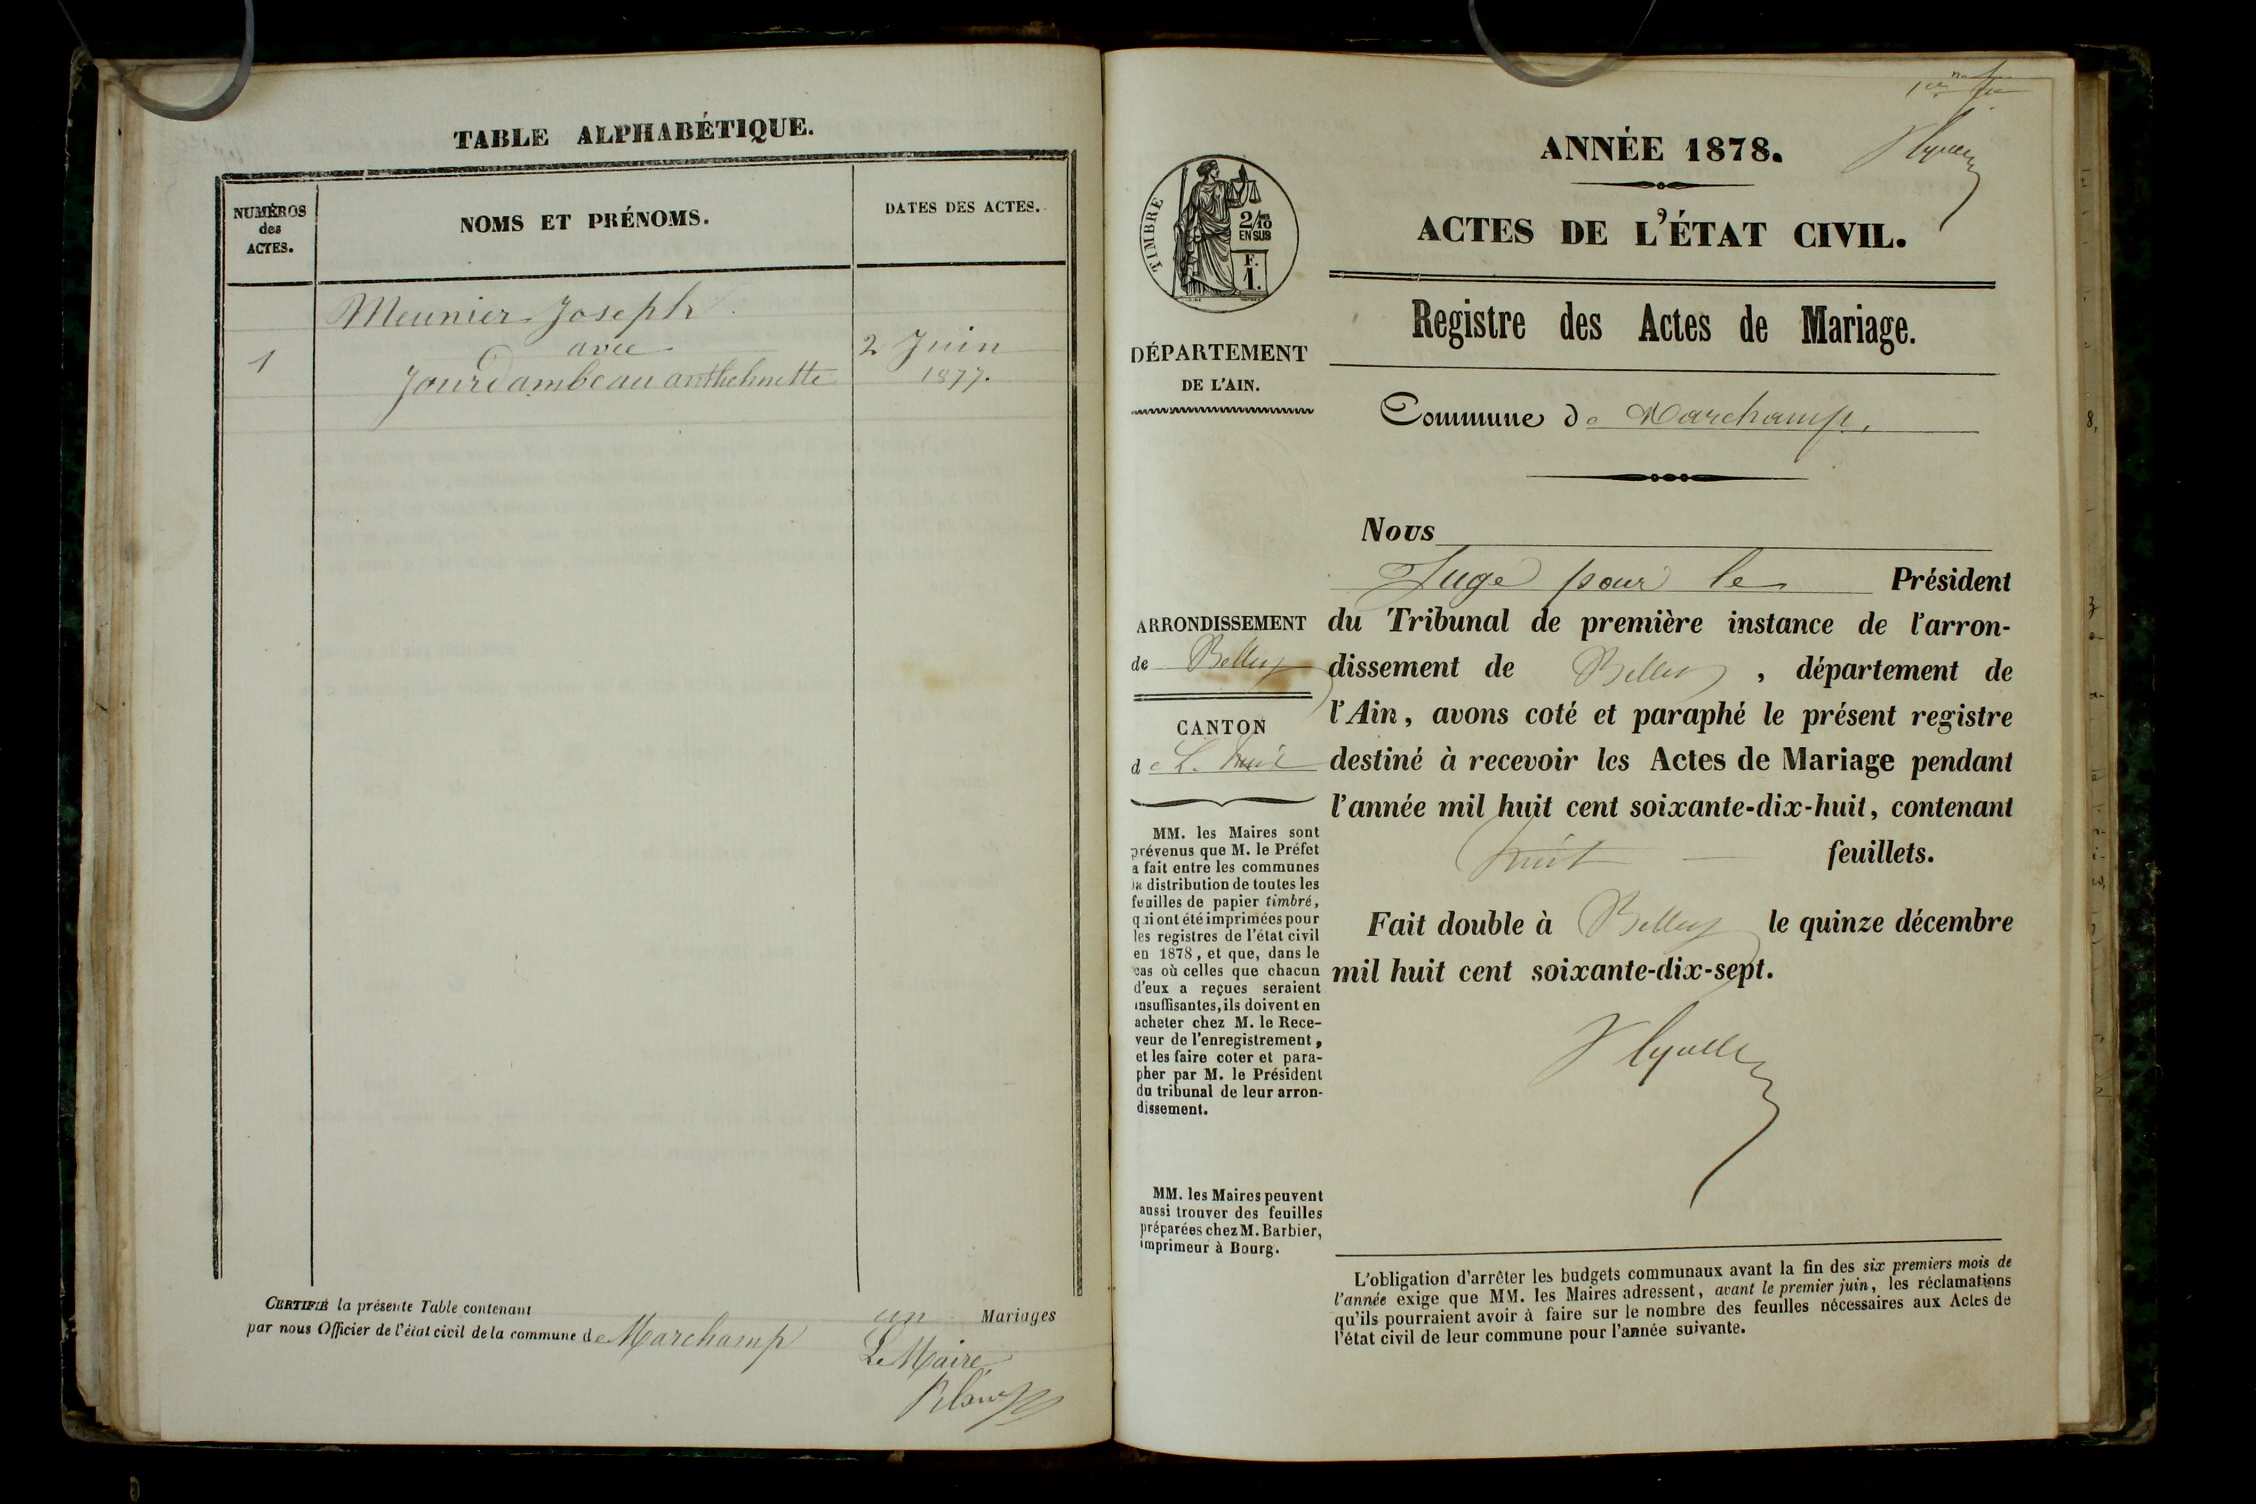 TABLE ALPHABÉTIQUE.
NUMÉROS
des
ACTES.
NOMS ET PRÉNOMS.
DATES DES ACTES.
Meunier Joseph
avec
1
2 Juin
Jourdambeau anthelmette
1877.
CERTIFIÉ la présente Table contenant un Mariages
par nous Officier de l'état civil de la commune de Marchamp
Le Maire
ANNÉE 1878.
ACTES DE L'ÉTAT CIVIL.
TIMBRE
2/10
EN SUS
F.
1.
Registre des Actes de Mariage.
DÉPARTEMENT
DE L'AIN.
Commune de Marchamp.
Nous
Juge pour le Président
ARRONDISSEMENT
de Belley
CANTON
de L. huis
du Tribunal de première instance de l'arron-
dissement de Belley, département de
l'Ain, avons coté et paraphé le présent registre
destiné à recevoir les Actes de Mariage pendant
l'année mil huit cent soixante-dix-huit, contenant
huit feuillets.
Fait double à Belley le quinze décembre
mil huit cent soixante-dix-sept.
MM. les Maires sont
prévenus que M. le Préfet
a fait entre les communes
la distribution de toutes les
feuilles de papier timbré,
qui ont été imprimées pour
les registres de l'état civil
en 1878, et que, dans le
cas où celles que chacun
d'eux a reçues seraient
insuffisantes, ils doivent en
acheter chez M. le Rece-
veur de l'enregistrement,
et les faire coter et para-
pher par M. le Président
du tribunal de leur arron-
dissement.
MM. les Maires peuvent
aussi trouver des feuilles
préparées chez M. Barbier,
imprimeur à Bourg.
L'obligation d'arrêter les budgets communaux avant la fin des six premiers mois de
l'année exige que MM. les Maires adressent, avant le premier juin, les réclamations
qu'ils pourraient avoir à faire sur le nombre des feuilles nécessaires aux Actes de
l'état civil de leur commune pour l'année suivante.